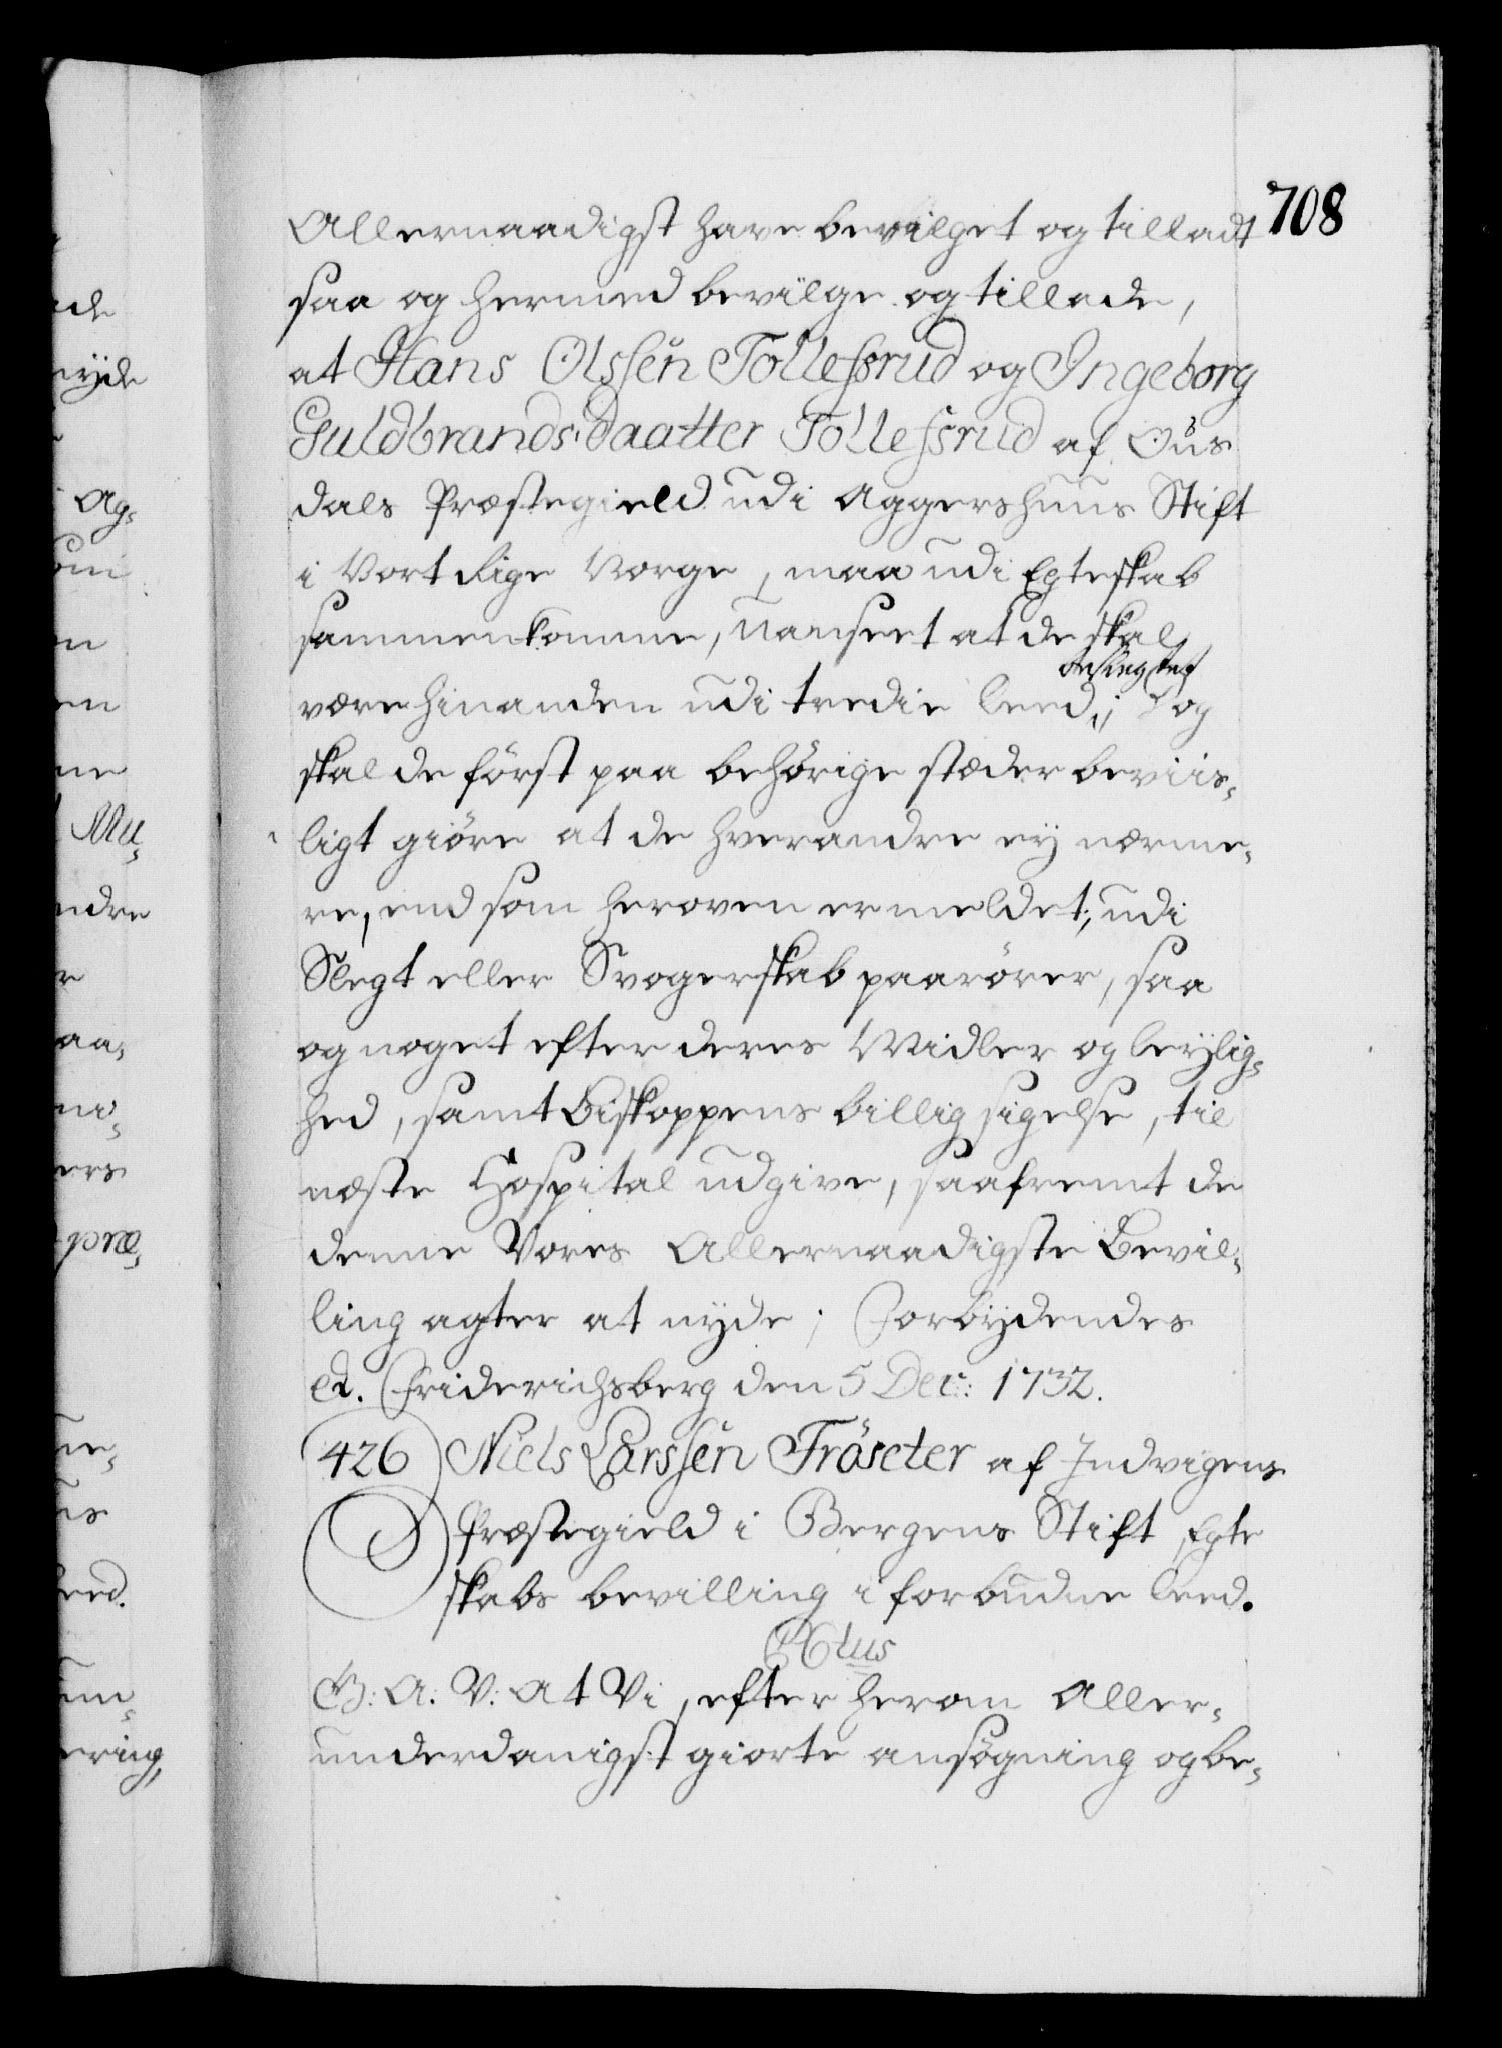 708
Allernaadigst have bevilget og tilladt
saa og hermed bevilge og tillade,
at Hans Olssen Tollefsrud og Ingeborg
Guldbrands-daatter Tollefsrud af Ous
dals Præstegield udi Aggershuus Stift
i Vort Rige Norge, maa udi Egteskab
sammenkomme, uanseet at de skal
beslegtet
være hinanden udi tredie Leed; og
skal de först paa behörige stæder beviis-
ligt giöre at de hverandre ey nærme-
re, end som heroven ermeldet, udi
Slegt eller Svogerskab paarörer, saa
og noget efter deres Midler og leylig-
hed, samt Biskoppens billig sigelse, til
næste Hospital udgive, saafremt de
denne Vores Allernaadigste Bevil-
ling agter at nyde; Forbydendes
et. Friderichsberg den 5 Dec: 1732.
426 Niels Larssen Fröseter af Indvigens
Præstegield i Bergens Stift Egte
skabs bevilling i forbudne Leed.
G: A: V: At Vi, efter herom Aller-
underdanigst giorte ansögning og be-